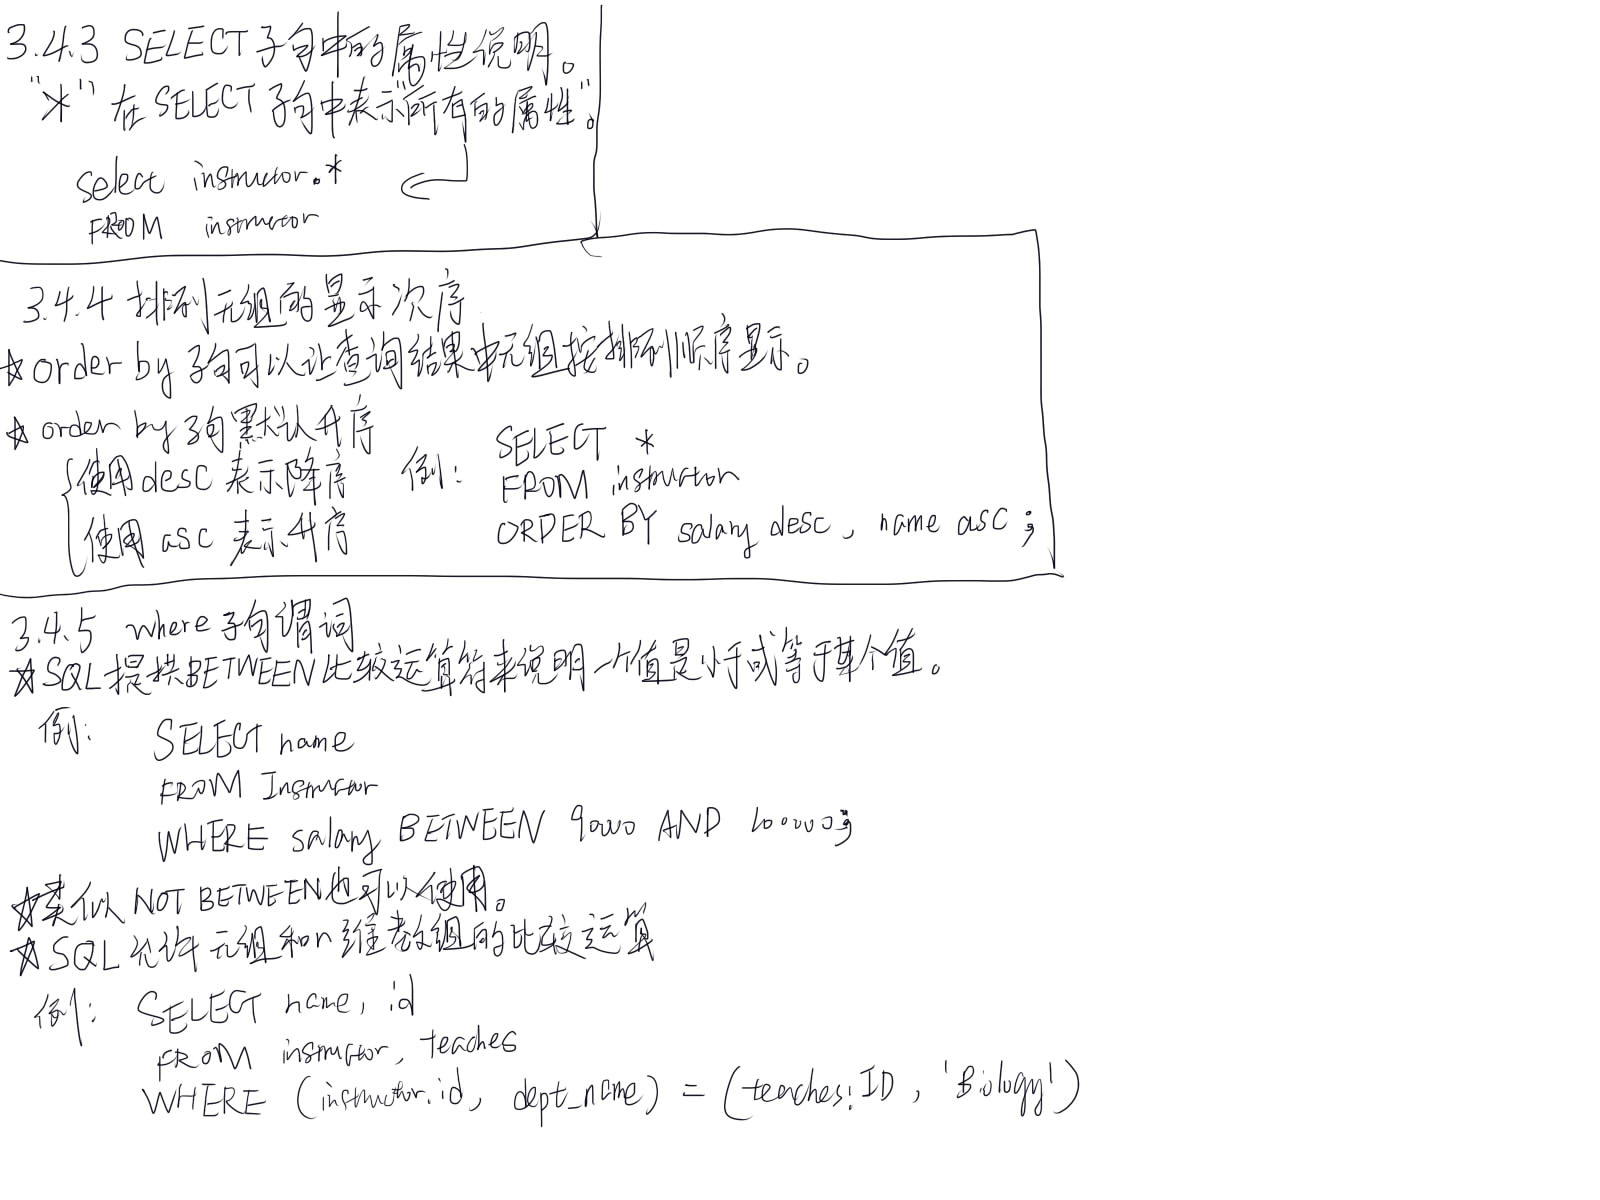 3.4.3 SELECT子句中的属性说明。
"*"在SELECT子句中表示"所有的属性"。
select instructor.*
FROM instructor
3.4.4 排列元组的显示次序
☆order by 子句可以让查询结果中元组按排列顺序显示。
☆order by 子句默认升序
使用desc 表示降序
使用asc 表示升序
例: SELECT *
FROM instructor
ORDER BY salary desc, name asc;
3.4.5 where子句谓词
☆SQL提供BETWEEN比较运算符来说明一个值是小于或等于某个值。
例: SELECT name
FROM Instructor
WHERE salary BETWEEN 90000 AND 100000;
☆类似NOT BETWEEN也可以使用。
☆SQL允许元组和n维数组的比较运算
例: SELECT name, id
FROM instructor, teaches
WHERE (instructor.id, dept_name) = (teaches.ID, 'Biology')